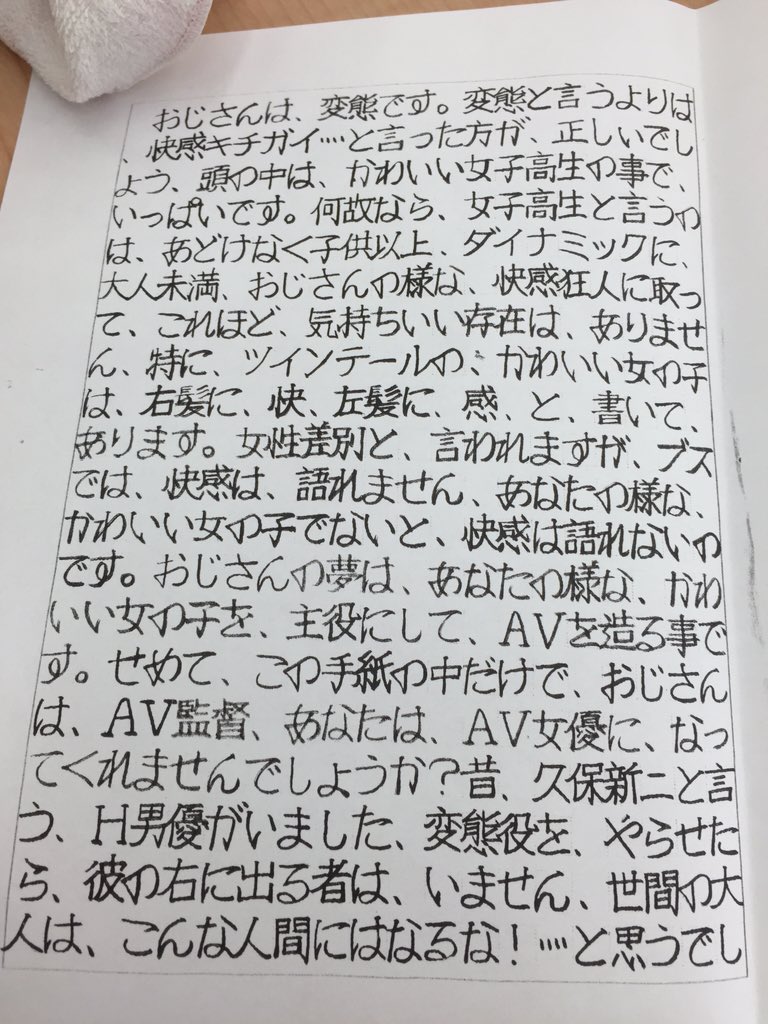 おじさんは、変態です。変態と言うよりは
、快感キチガイ…と言った方が、正しいでし
ょう、頭の中は、かわいい女子高生の事で、
いっぱいです。何故なら、女子高生と言うの
は、あどけなく子供以上、ダイナミックに、
大人未満、おじさんの様な、快感狂人に取っ
て、これほど、気持ちいい存在は、ありませ
ん、特に、ツインテールの、かわいい女の子
は、右髪に、快、左髪に、感、と、書いて、
あります。女性差別と、言われますが、ブス
では、快感は、語れません、あなたの様な、
かわいい女の子でないと、快感は語れないの
です。おじさんの夢は、あなたの様な、かわ
いい女の子を、主役にして、AVを造る事で
す。せめて、この手紙の中だけで、おじさん
は、AV監督、あなたは、AV女優に、なっ
てくれませんでしょうか?昔、久保新二と言
う、H男優がいました、変態役を、やらせた
ら、彼の右に出る者は、いません、世間の大
人は、こんな人間にはなるな!…と思うでし